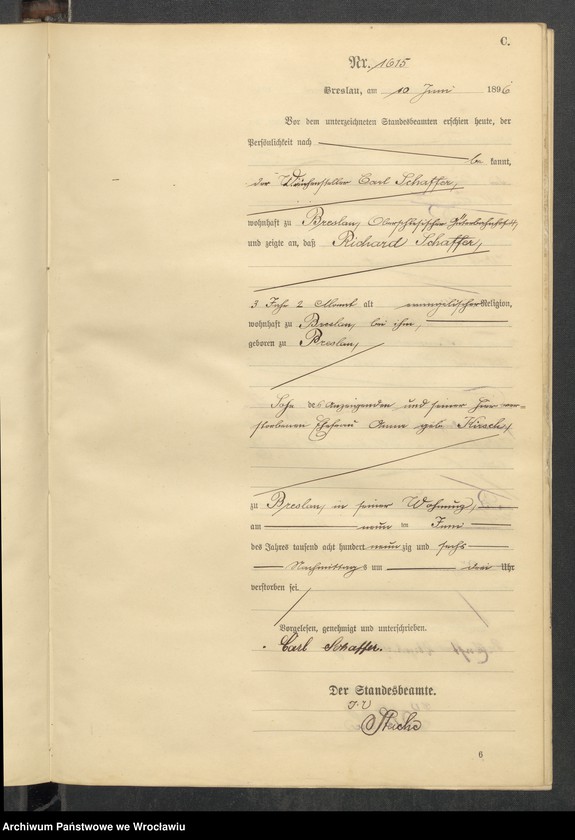 C.
Nr. 1615
Breslau, am 10 Juni 1896
Vor dem unterzeichneten Standesbeamten erschien heute, der
Persönlichkeit nach
be kannt,
der Weichensteller Carl Schaffer,
wohnhaft zu Breslau, Oberschlesischer Güterbahnhof
und zeigte an, daß Richard Schaffer,
3 Jahr 2 Monat alt evangelischer Religion,
wohnhaft zu Breslau, bei ihm,
geboren zu Breslau,
Sohn des Anzeigenden und seiner ver=
storbenen Ehefrau Anna geb. Kirsch,
zu Breslau, in seiner Wohnung,
am neun ten Juni
des Jahres tausend acht hundert neun zig und sechs
Nachmittag s um drei Uhr
verstorben sei.
Vorgelesen, genehmigt und unterschrieben.
Carl Schaffer.
Der Standesbeamte.
J. V.
6
Archiwum Państwowe we Wrocławiu